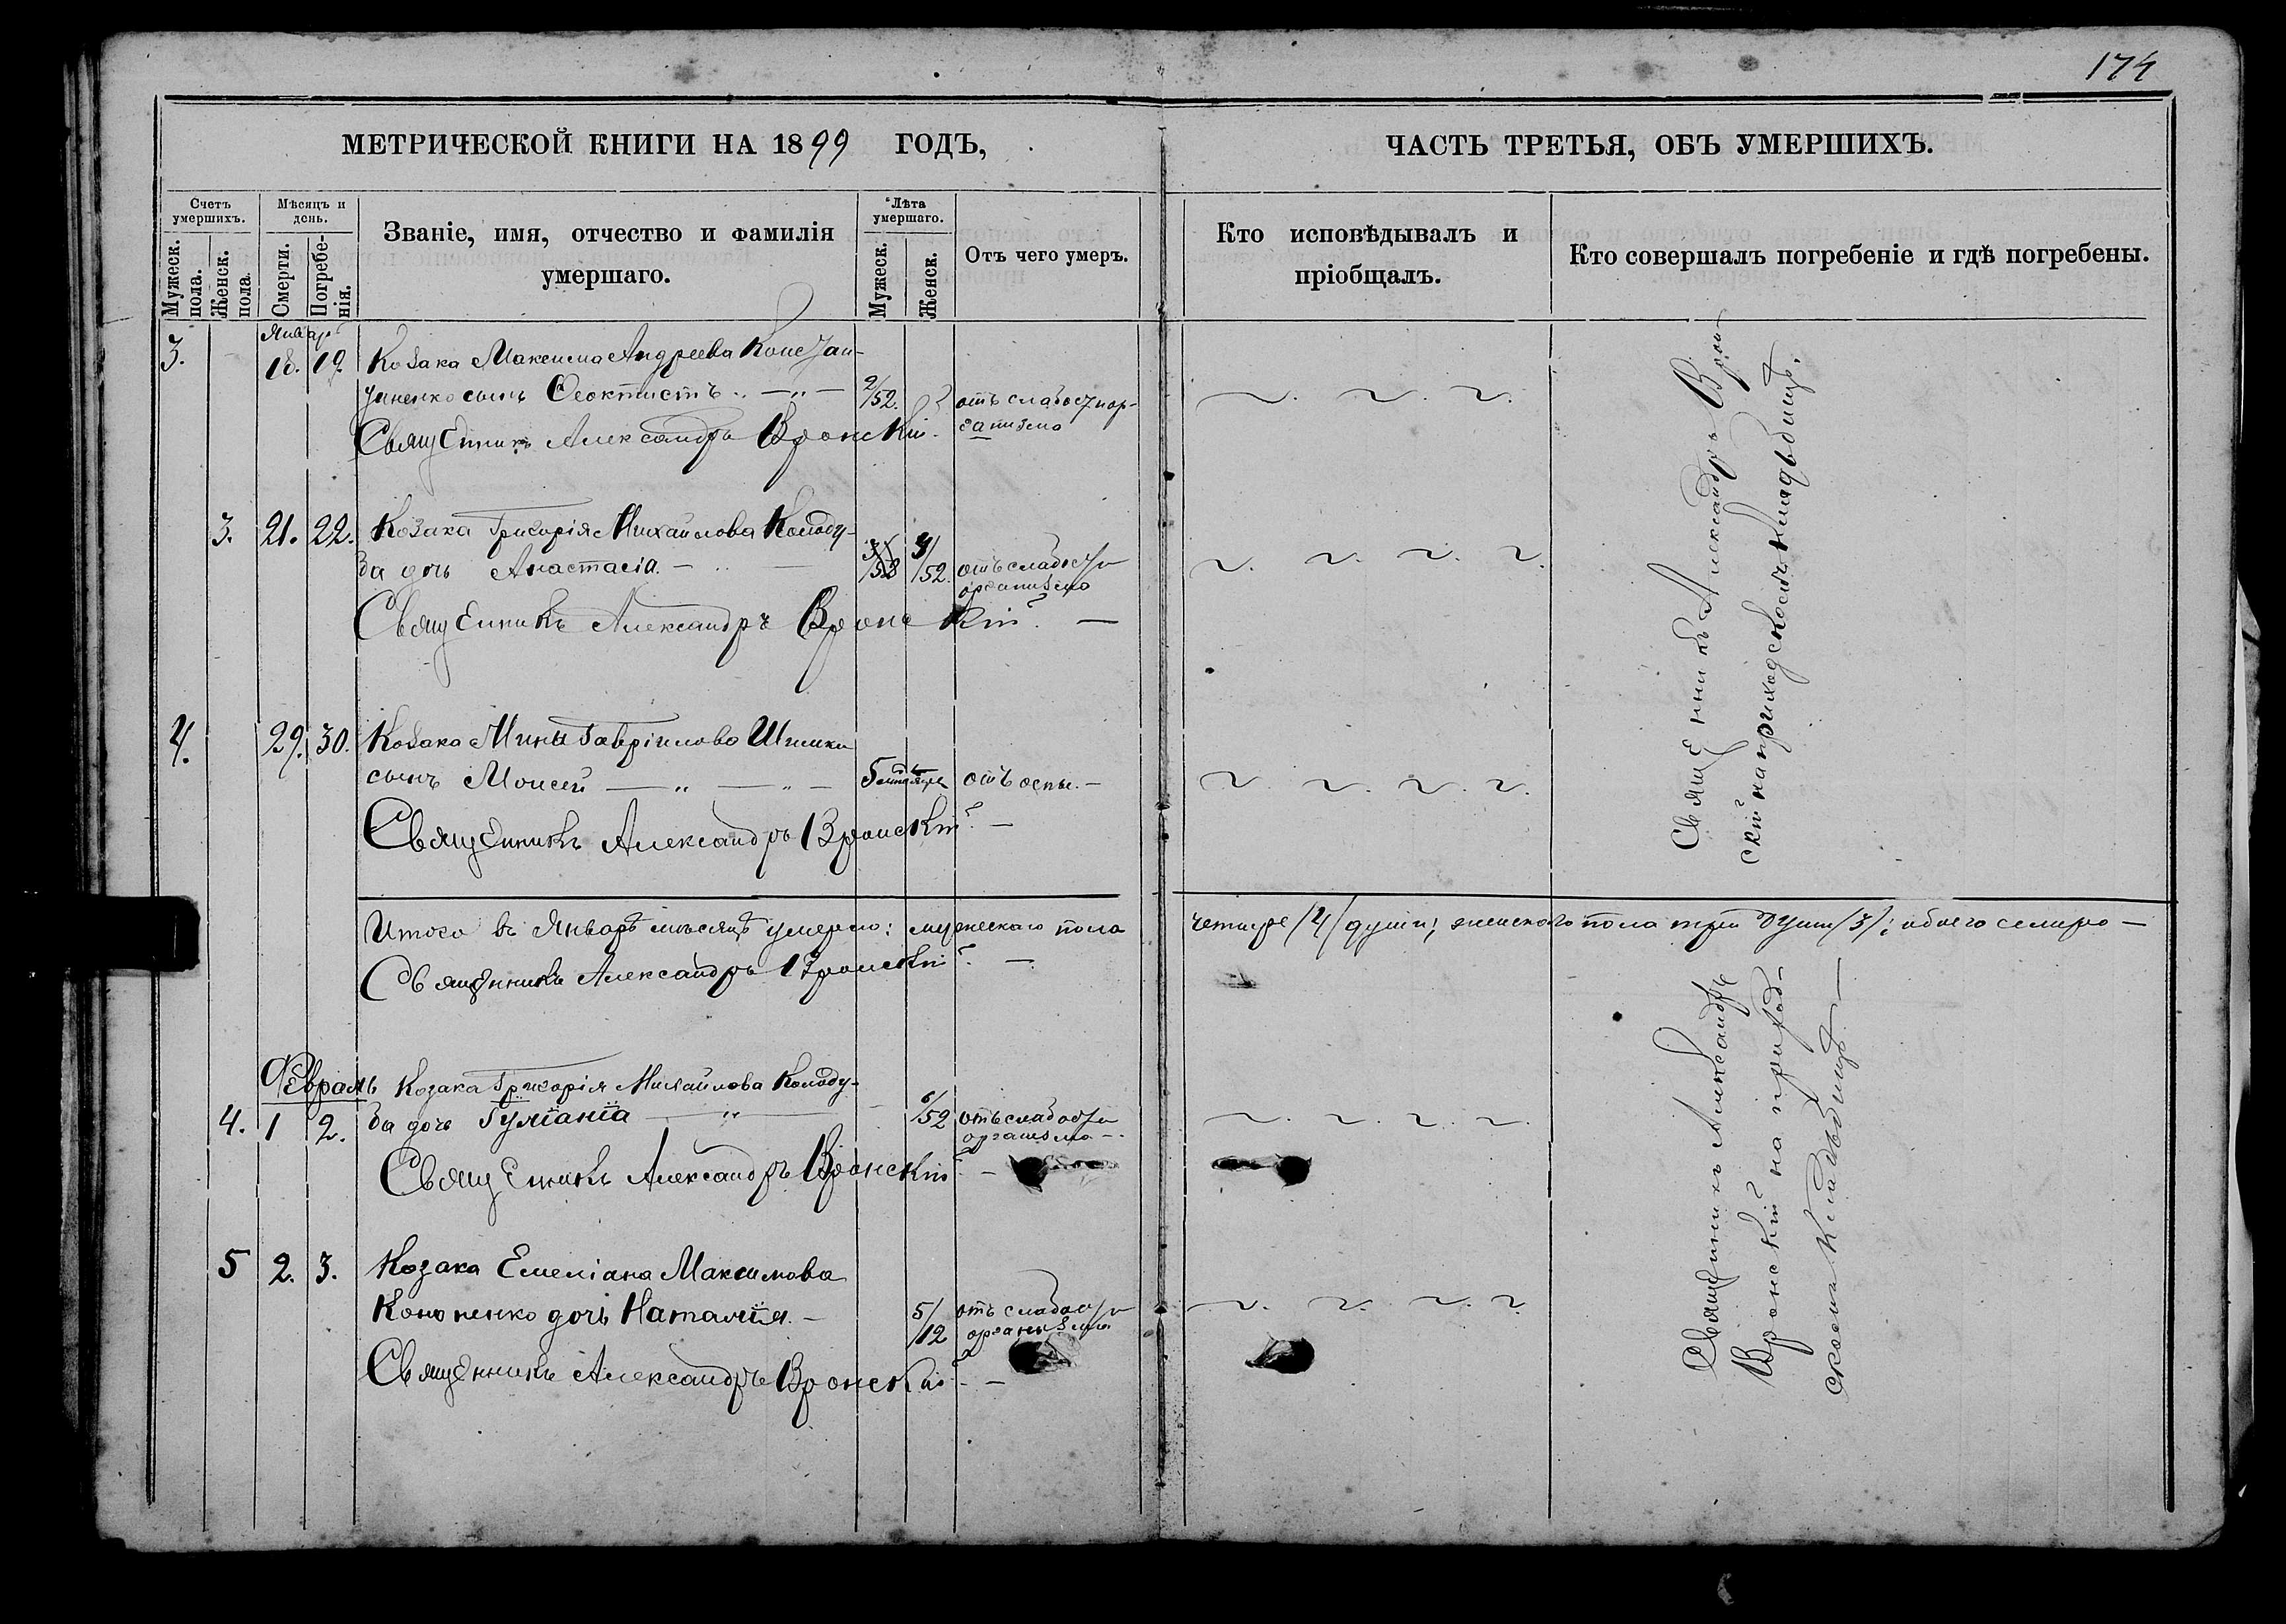 174
МЕТРИЧЕСКОЙ КНИГИ НА 1899 ГОДЪ,
ЧАСТЬ ТРЕТЬЯ, ОБЪ УМЕРШИХЪ.
Счетъ умершихъ.
Мужеск. пола.
Женск. пола.
Мѣсяцъ и день.
Смерти.
Погребе-
нія.
Званіе, имя, отчество и фамилія
умершаго.
Лѣта умершаго.
Мужеск.
Женск.
Отъ чего умеръ.
Кто исповѣдывалъ и
пріобщалъ.
Кто совершалъ погребеніе и гдѣ погребены.
Январь
3. 18. 19. Козака Максима Андреева Констан-
тиненко сынъ Феоктистъ 2/52. отъ слабост. ор-
ганизма
Священникъ Александръ Вронскій.
3. 21. 22. Козака Григорія Михайлова Колоду-
ба дочь Анастасія. 3/52. отъ слабости
организма
Священникъ Александръ Вронскій. —
4. 29. 30. Козака Мины Гавріилова
сынъ Моисей 5 отъ оспы. —
Священникъ Александръ Вронскій. —
Священникъ Александръ Врон-
скій на приходскомъ кладбищѣ.
Итого въ Январѣ мѣсяцѣ умерло: мужескаго пола четыре /4/ души; женского пола три души /3/; обоего семеро —
Священникъ Александръ Вронскій. —
Февраль
4. 1 2. Козака Григорія Михайлова Колоду-
ба дочь Гуліанія 6/52 отъ слабости
организма —
Священникъ Александръ Вронскій. —
5 2. 3. Козака Емеліана Максимова
Кононенко дочь Наталія. — 5/12 отъ слабости
организма
Священникъ Александръ Вронскій. —
Священникъ Александръ
Вронскій на приход-
скомъ кладбищѣ. —